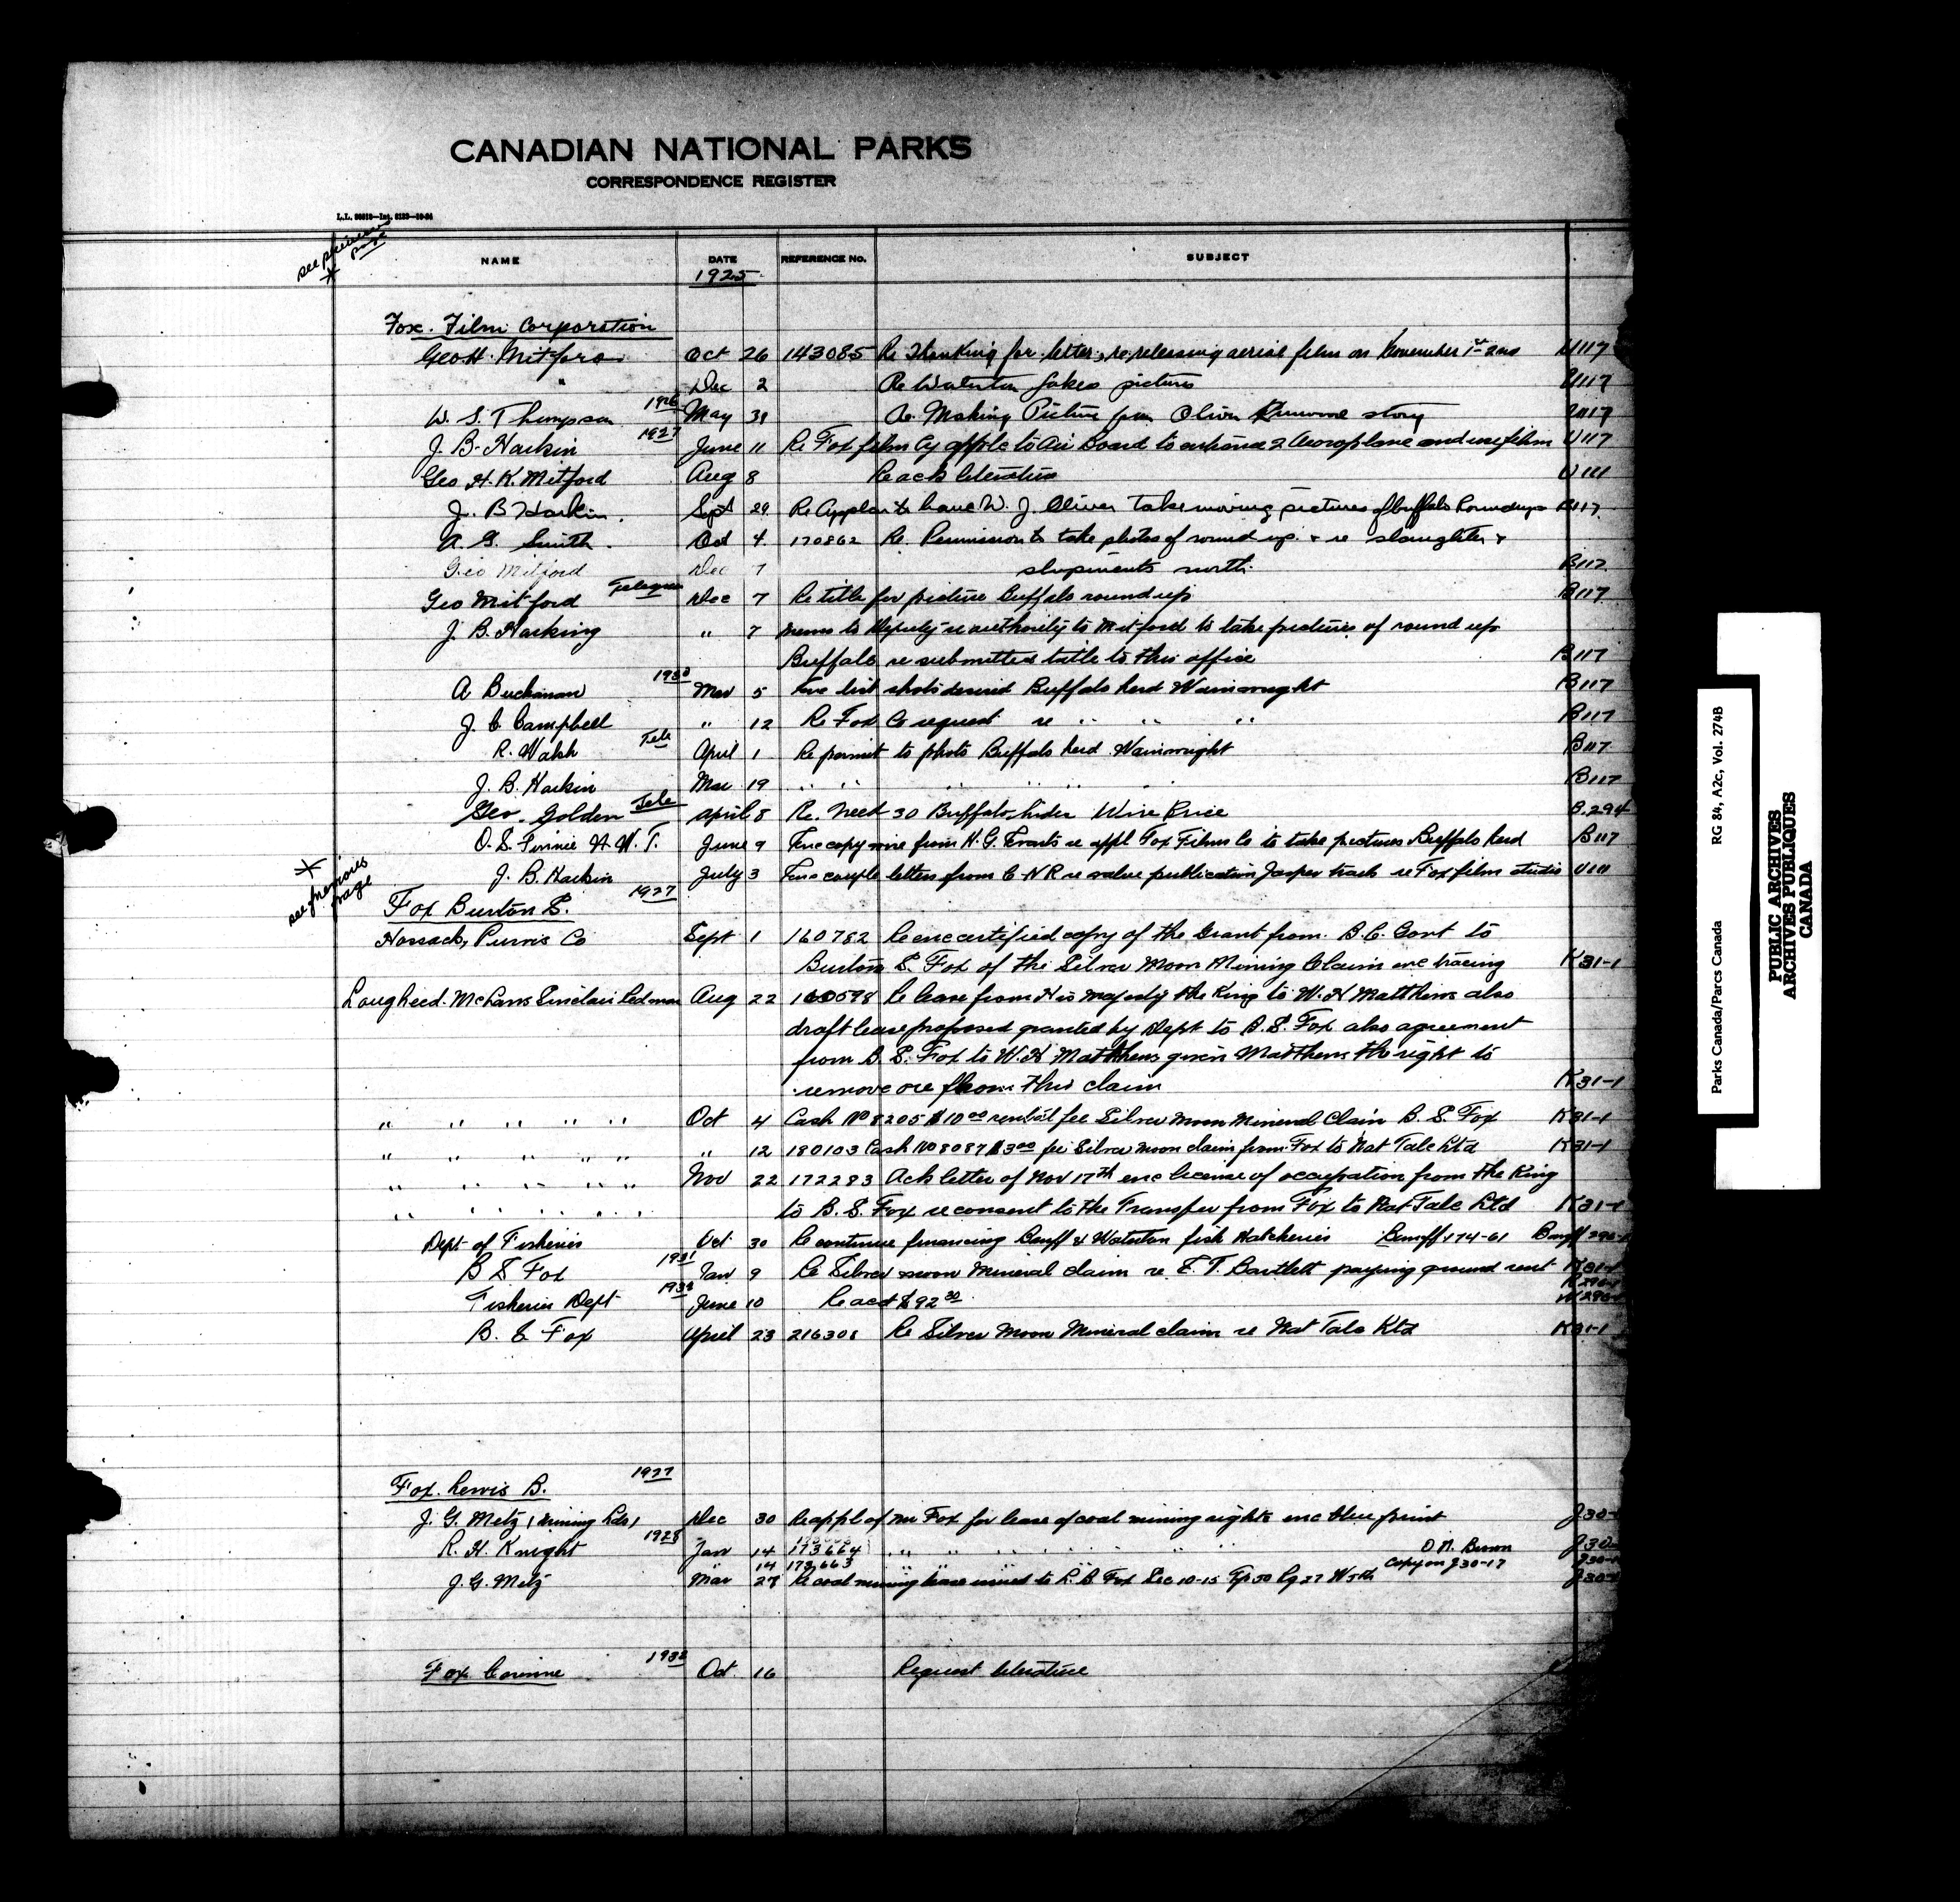 CANADIAN NATIONAL PARKS
CORRESPONDENCE REGISTER
see previous page
*
NAME DATE REFERENCE No. SUBJECT
1925
Fox. Film Corporation
Geo H. Mitford Oct 26 143085 Re Thanking for letter, re releasing aerial film on November 1st 2nd U117
" Dec 2 Re Waterton Lakes pictures U117
W. S. Thompson 1926 May 31 Re. Making Picture from Oliver story U117
J. B. Harkin 1927 June 11 Re Fox film Coy apple to Air Board to 2 Aeroplane and use film U117
Geo H. K. Mitford Aug 8 Re ack literature U111
J. B Harkin. Sept 29 Re Applen to have W. J. Oliver take moving pictures of buffalo Roundup B117
A. G. Smith. Oct 4 170862 Re. Permission to take photos of round up. & re slaughter &
Geo Mitford Dec 7 shipments north. B117
Geo Mitford Telegram Dec 7 Re title for picture Buffalo roundup B117
J. B. Harking " 7 memo to Deputy re authority to Mitford to take pictures of round up
Buffalo re submitted title to this office B117
A Buchanan 1928 Mar 5 Enc list shots desired Buffalo herd Wainwright B117
J. C Campbell " 12 Re Fox Co request re " " " B117
R. Walsh Tele April 1 Re permit to photo Buffalo herd Wainwright B117
J. B. Harkin Mar 19 " " " " " " B117
Geo. Golden Tele April 8 Re. Need 30 Buffalo hides Wire Price B.294
O. S. Finnie N. W. T. June 9 Enc copy wire from H. G. re appl Fox Films Co to take pictures Buffalo herd B117
J. B. Harkin July 3 Enc couple letters from C N R re value publication Jasper re Fox film studio U111
*
see previous page
Fox Burton S. 1927
Hossack, Purvis Co Sept 1 160782 Re enc certified copy of the Grant from. B.C. Govt to
Burton S. Fox of the Silver Moon Mining Claim enc tracing K31-1
Lougheed. McLaws Sinclair Redman Aug 22 160598 Re lease from His majesty the King to W. H Matthews also
draft lease proposed granted by Dept to B. S. Fox also agreement
from B. S. Fox to W. H Matthews given Matthews the right to
remove ore from this claim K31-1
" " " " " Oct 4 Cash No 8205 $10.00 rental fee Silver Moon Mineral Claim B. S. Fox K31-1
" " " " " " 12 180103 Cash No 8087 $3.00 fee Silver Moon claim from Fox to Nat Talc Ltd K31-1
" " " " " Nov 22 172283 Ack letter of Nov 17th enc license of occupation from the King
" " " " " to B. S. Fox re consent to the Transfer from Fox to Nat Talc Ltd K31-1
Dept of Fisheries Oct 30 Re continue financing Banff & Waterton fish Hatcheries Banff 174-61 Banff 296-
B S Fox 1931 Jan 9 Re Silver moon Mineral claim re E. T. Bartlett paying ground rent K31-1
Fisheries Dept June 10 Re acct $92.30
B. S Fox April 23 216308 Re Silver Moon Mineral claim re Nat Talc Ltd K31-1
Fox. Lewis B. 1927
J. G. Metz (Mining Lds) Dec 30 Re appl of Mr Fox for lease of coal mining rights enc blue print J30-
R. H. Knight 1928 Jan 14 173664 " " " " " " " J30-
" 14 173663 " " " " Copy on J30-17 J30-
J. G. Metz Mar 27 Re coal mining lease issued to L. B Fox Sec 10-15 Tp 50 Rg 27 W5th J30-
Fox Corinne Oct 16 Request literature
Parks Canada/Parcs Canada RG 84, A2c, Vol. 274B
PUBLIC ARCHIVES
ARCHIVES PUBLIQUES
CANADA